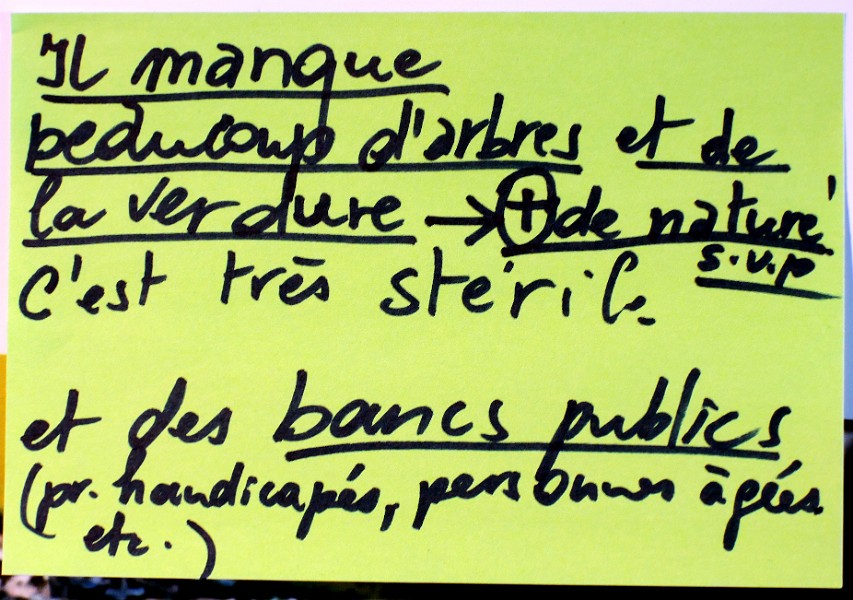 Il manque
beaucoup d'arbres et de
la verdure → + de nature
s.v.p
c'est très stérile
et des bancs publics
(pr. handicapés, personnes âgées
etc.)